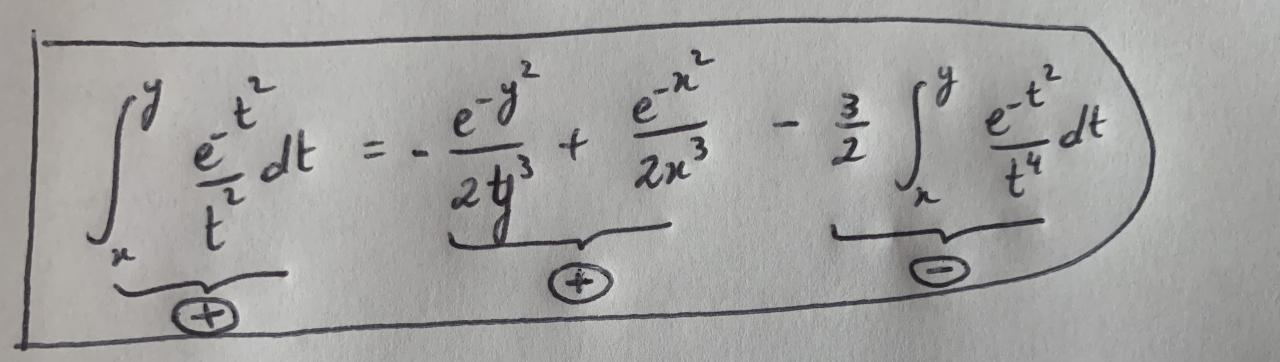 ∫_x^y e^{-t^2}/t^2 dt = - e^{-y^2}/2y^3 + e^{-x^2}/2x^3 - 3/2 ∫_x^y e^{-t^2}/t^4 dt
⊕ ⊕ ⊖